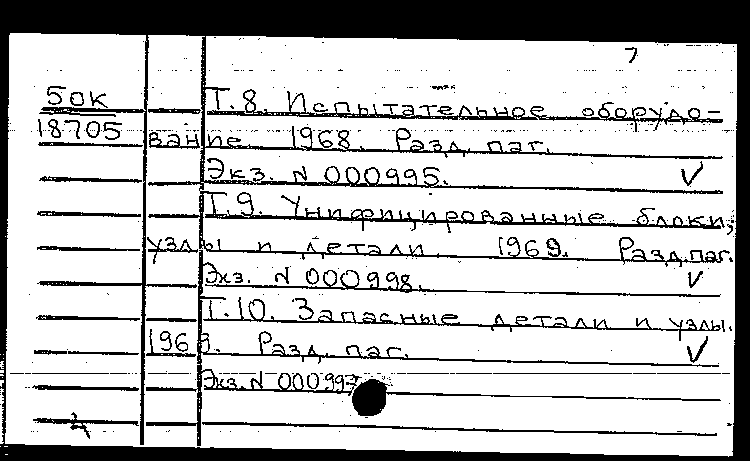 7
50К Т.8. Испытательное оборудо-
18705 вание. 1968. Разд. паг.
Экз. N 000995. ✓
Т.9. Унифицированные блоки,
узлы и детали. 1969. Разд. паг.
Экз. N 000998. ✓
Т.10. Запасные детали и узлы.
1969. Разд. паг. ✓
Экз. N 000997